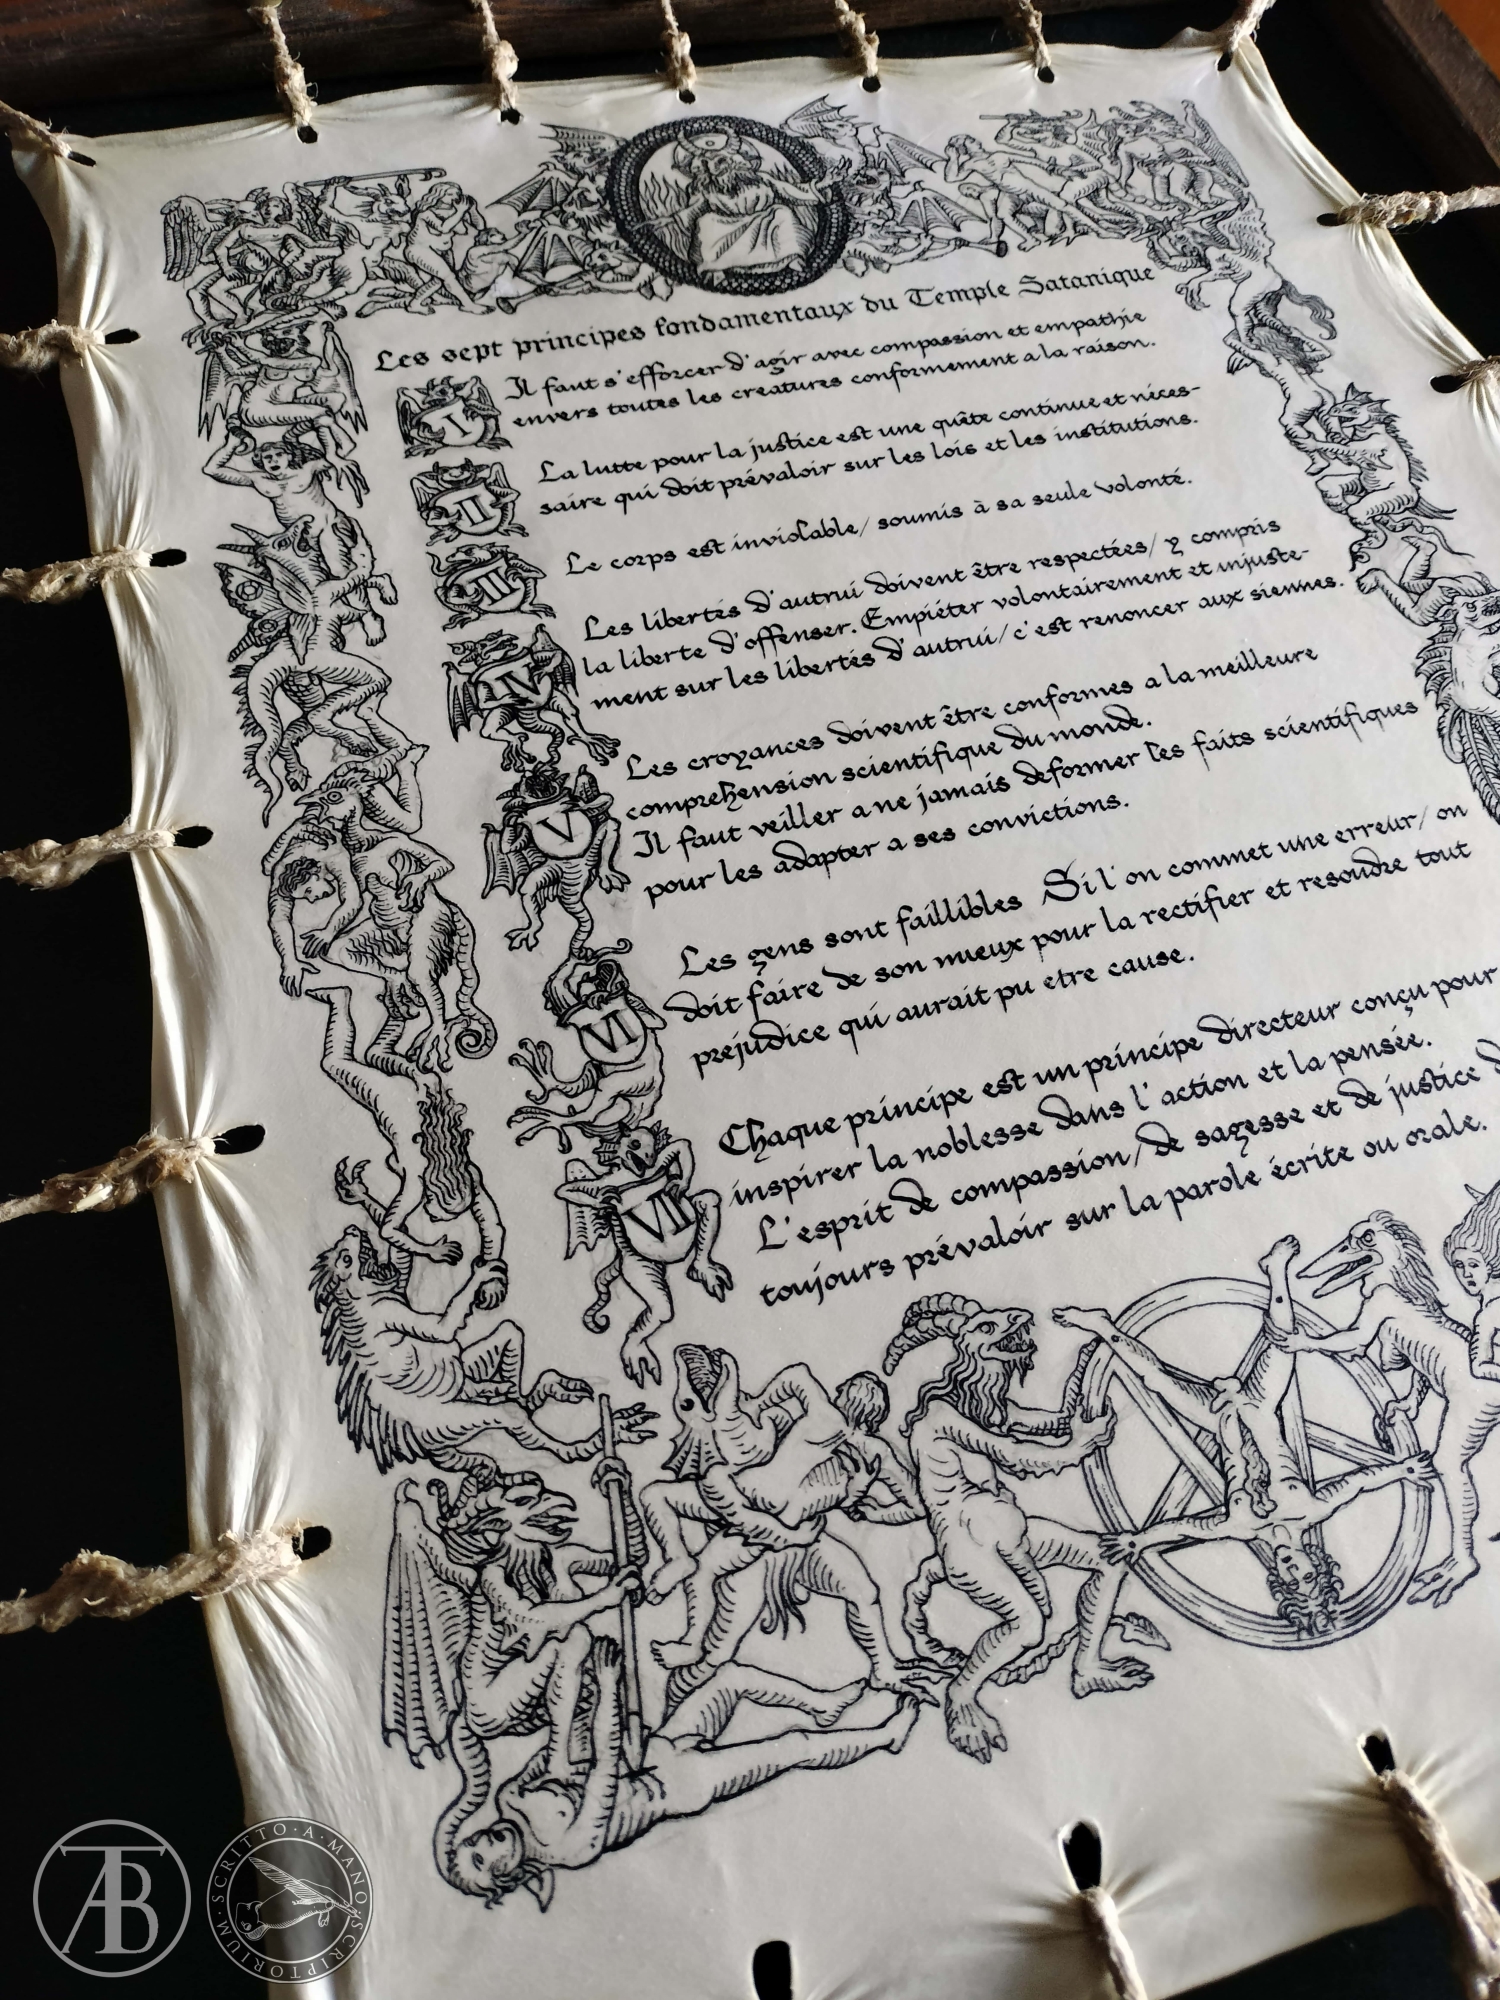 Les sept principes fondamentaux du Temple Satanique
I
Il faut s'efforcer d'agir avec compassion et empathie
envers toutes les creatures conformement a la raison.
II
La lutte pour la justice est une quête continue et néces-
saire qui doit prévaloir sur les lois et les institutions.
III
Le corps est inviolable/ soumis à sa seule volonté.
IV
Les libertés d'autrui doivent être respectées/ y compris
la liberte d'offenser. Empiéter volontairement et injuste-
ment sur les libertés d'autrui/ c'est renoncer aux siennes.
V
Les croyances doivent être conformes a la meilleure
comprehension scientifique du monde.
Il faut veiller a ne jamais deformer les faits scientifiques
pour les adapter a ses convictions.
VI
Les gens sont faillibles Si l'on commet une erreur/ on
doit faire de son mieux pour la rectifier et resoudre tout
prejudice qui aurait pu etre cause.
VII
Chaque principe est un principe directeur conçu pour
inspirer la noblesse dans l'action et la pensée.
L'esprit de compassion/ de sagesse et de justice
toujours prévaloir sur la parole écrite ou orale.
TAB
SCRITTO·A·MANO·SCRIPTORIUM·